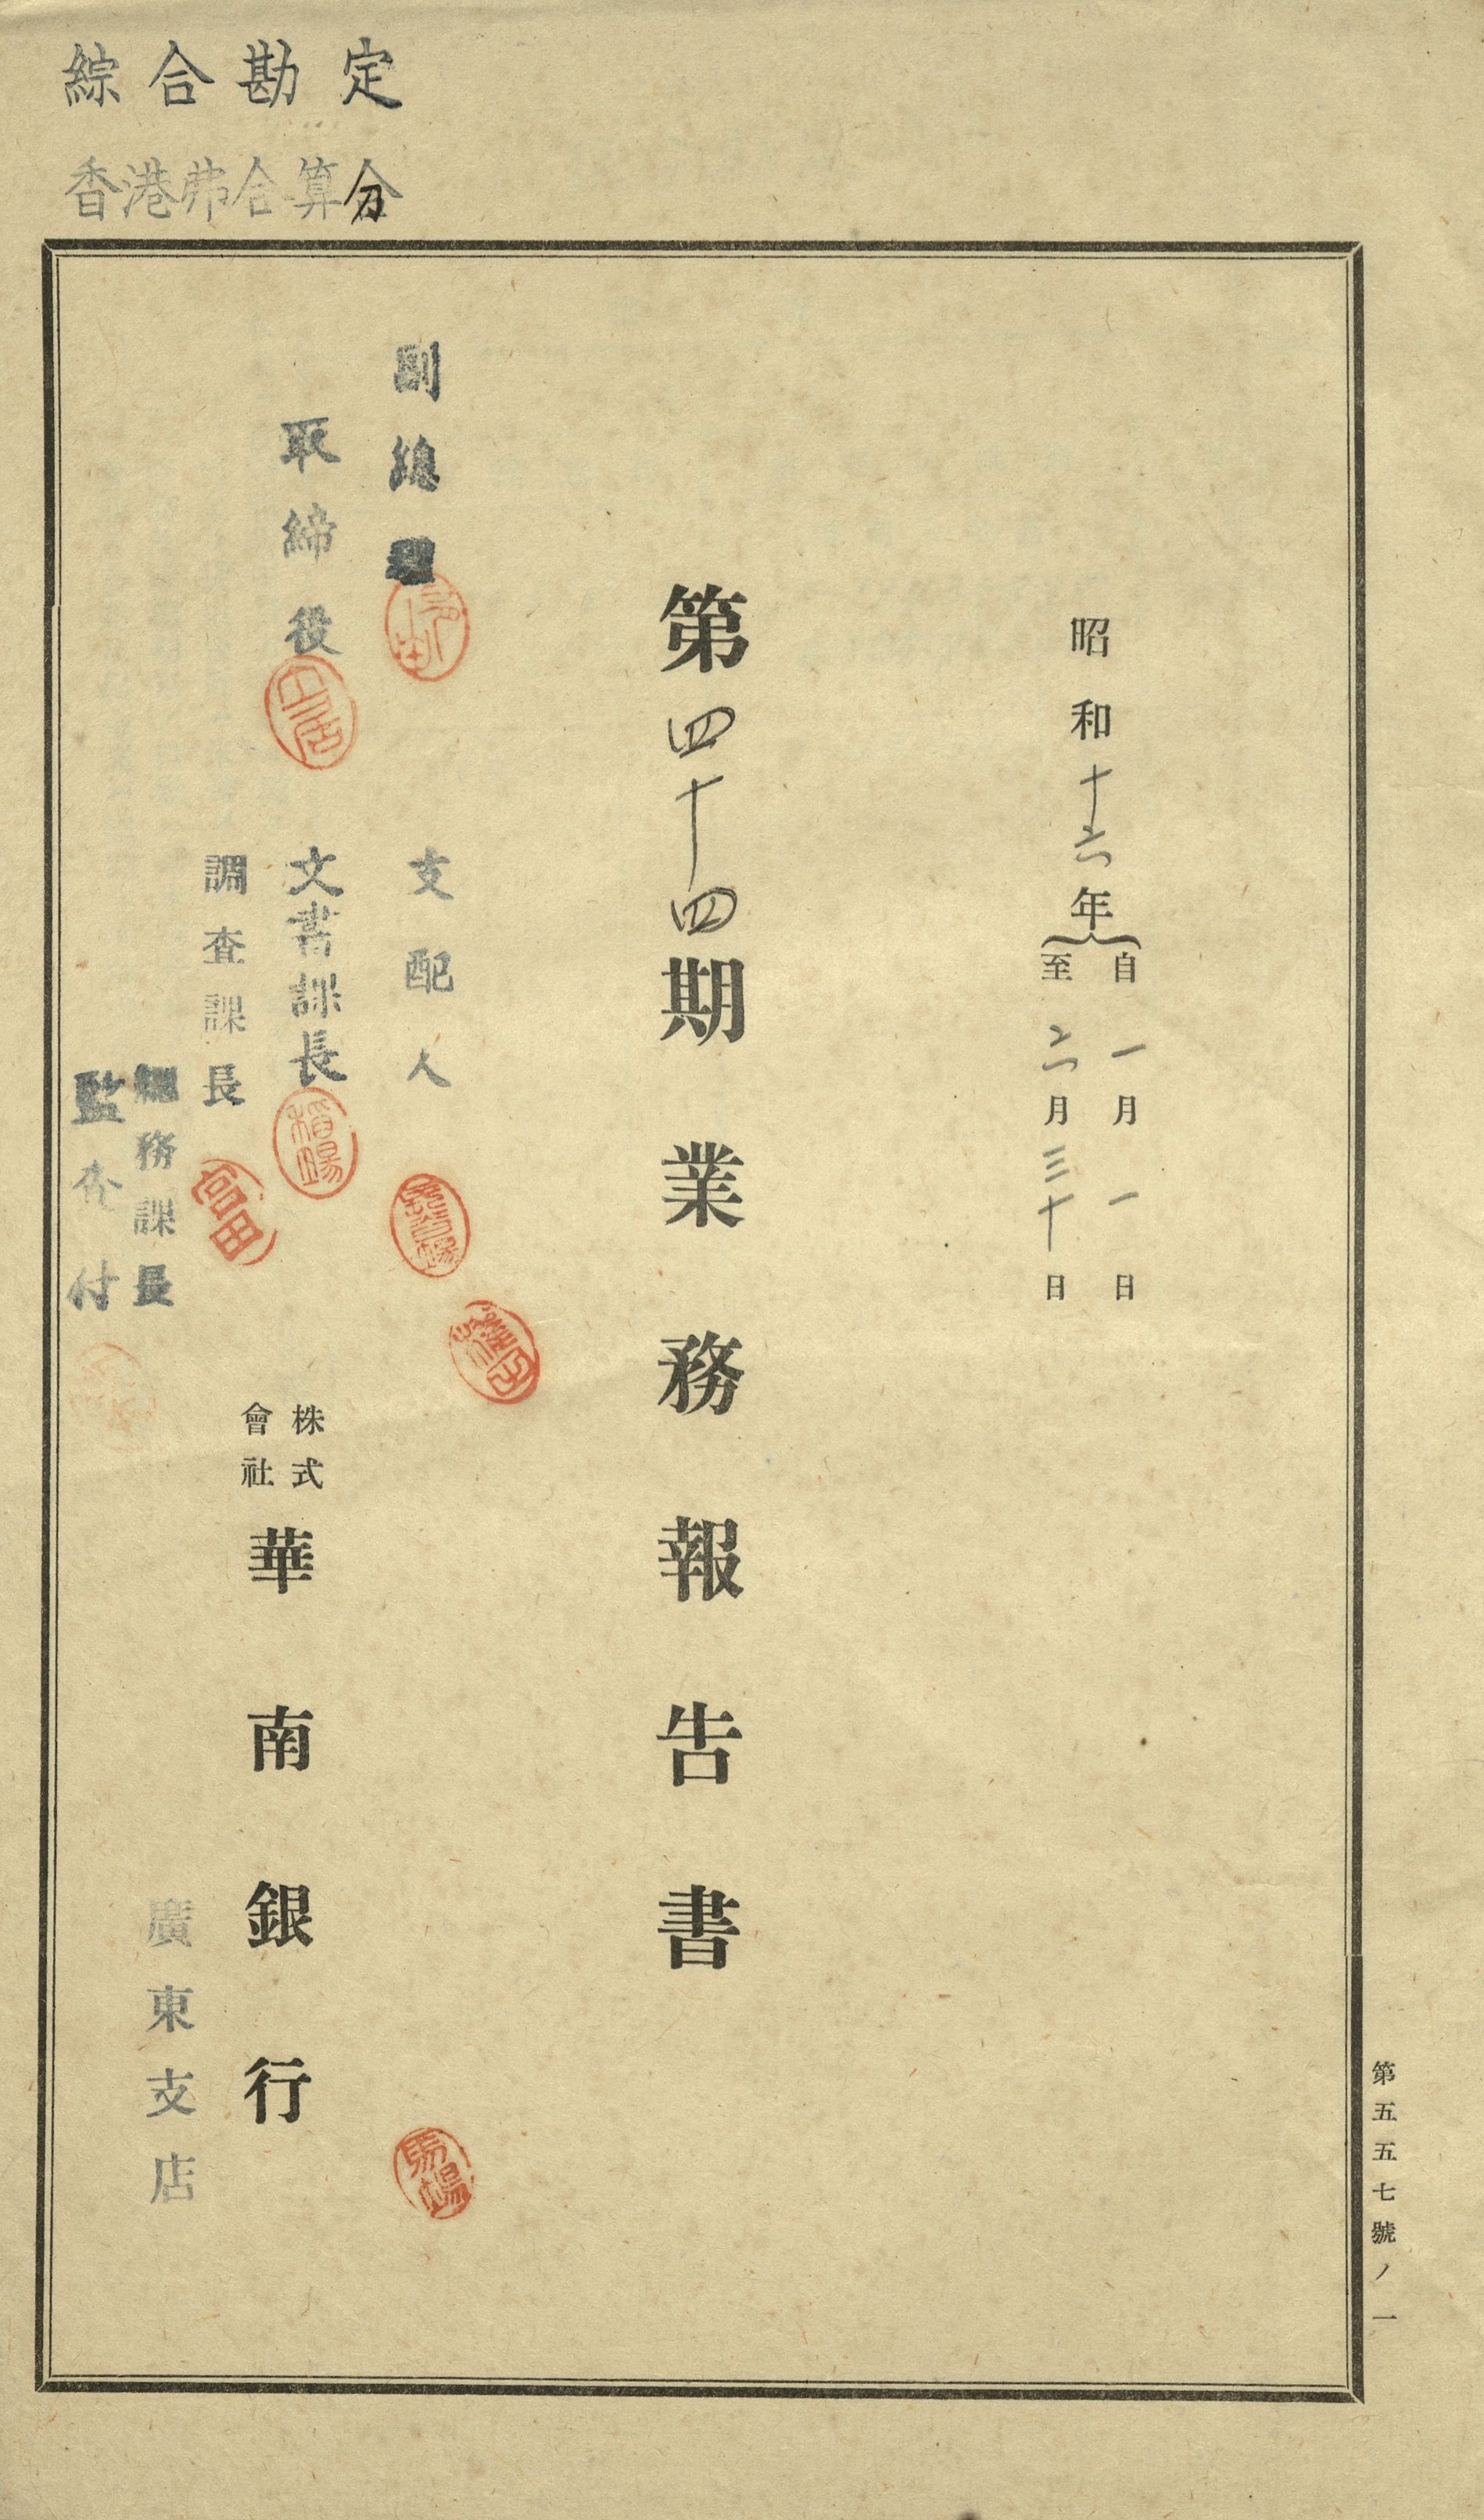 綜合勘定
香港弗合算分
昭和十六年
自一月一日
至六月三十日
第四十四期業務報告書
副總理
支配人
取締役
文書課長
稻場
調查課長
富田
總務課長
監查付
株式會社
華南銀行
廣東支店
第五五七號ノ一